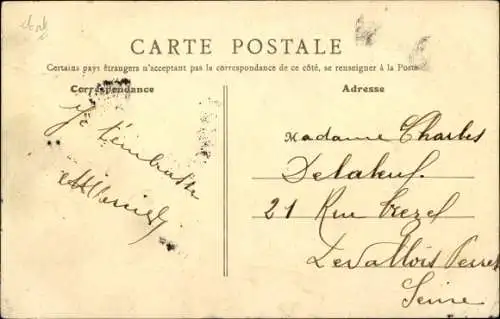 CARTE POSTALE
Certains pays étrangers n'acceptant pas la correspondance de ce côté, se renseigner à la Poste
Correspondance
Adresse
Je t'embrasse
Madame Charles
Delabeuf
21 Rue Trezel
Levallois Perret
Seine